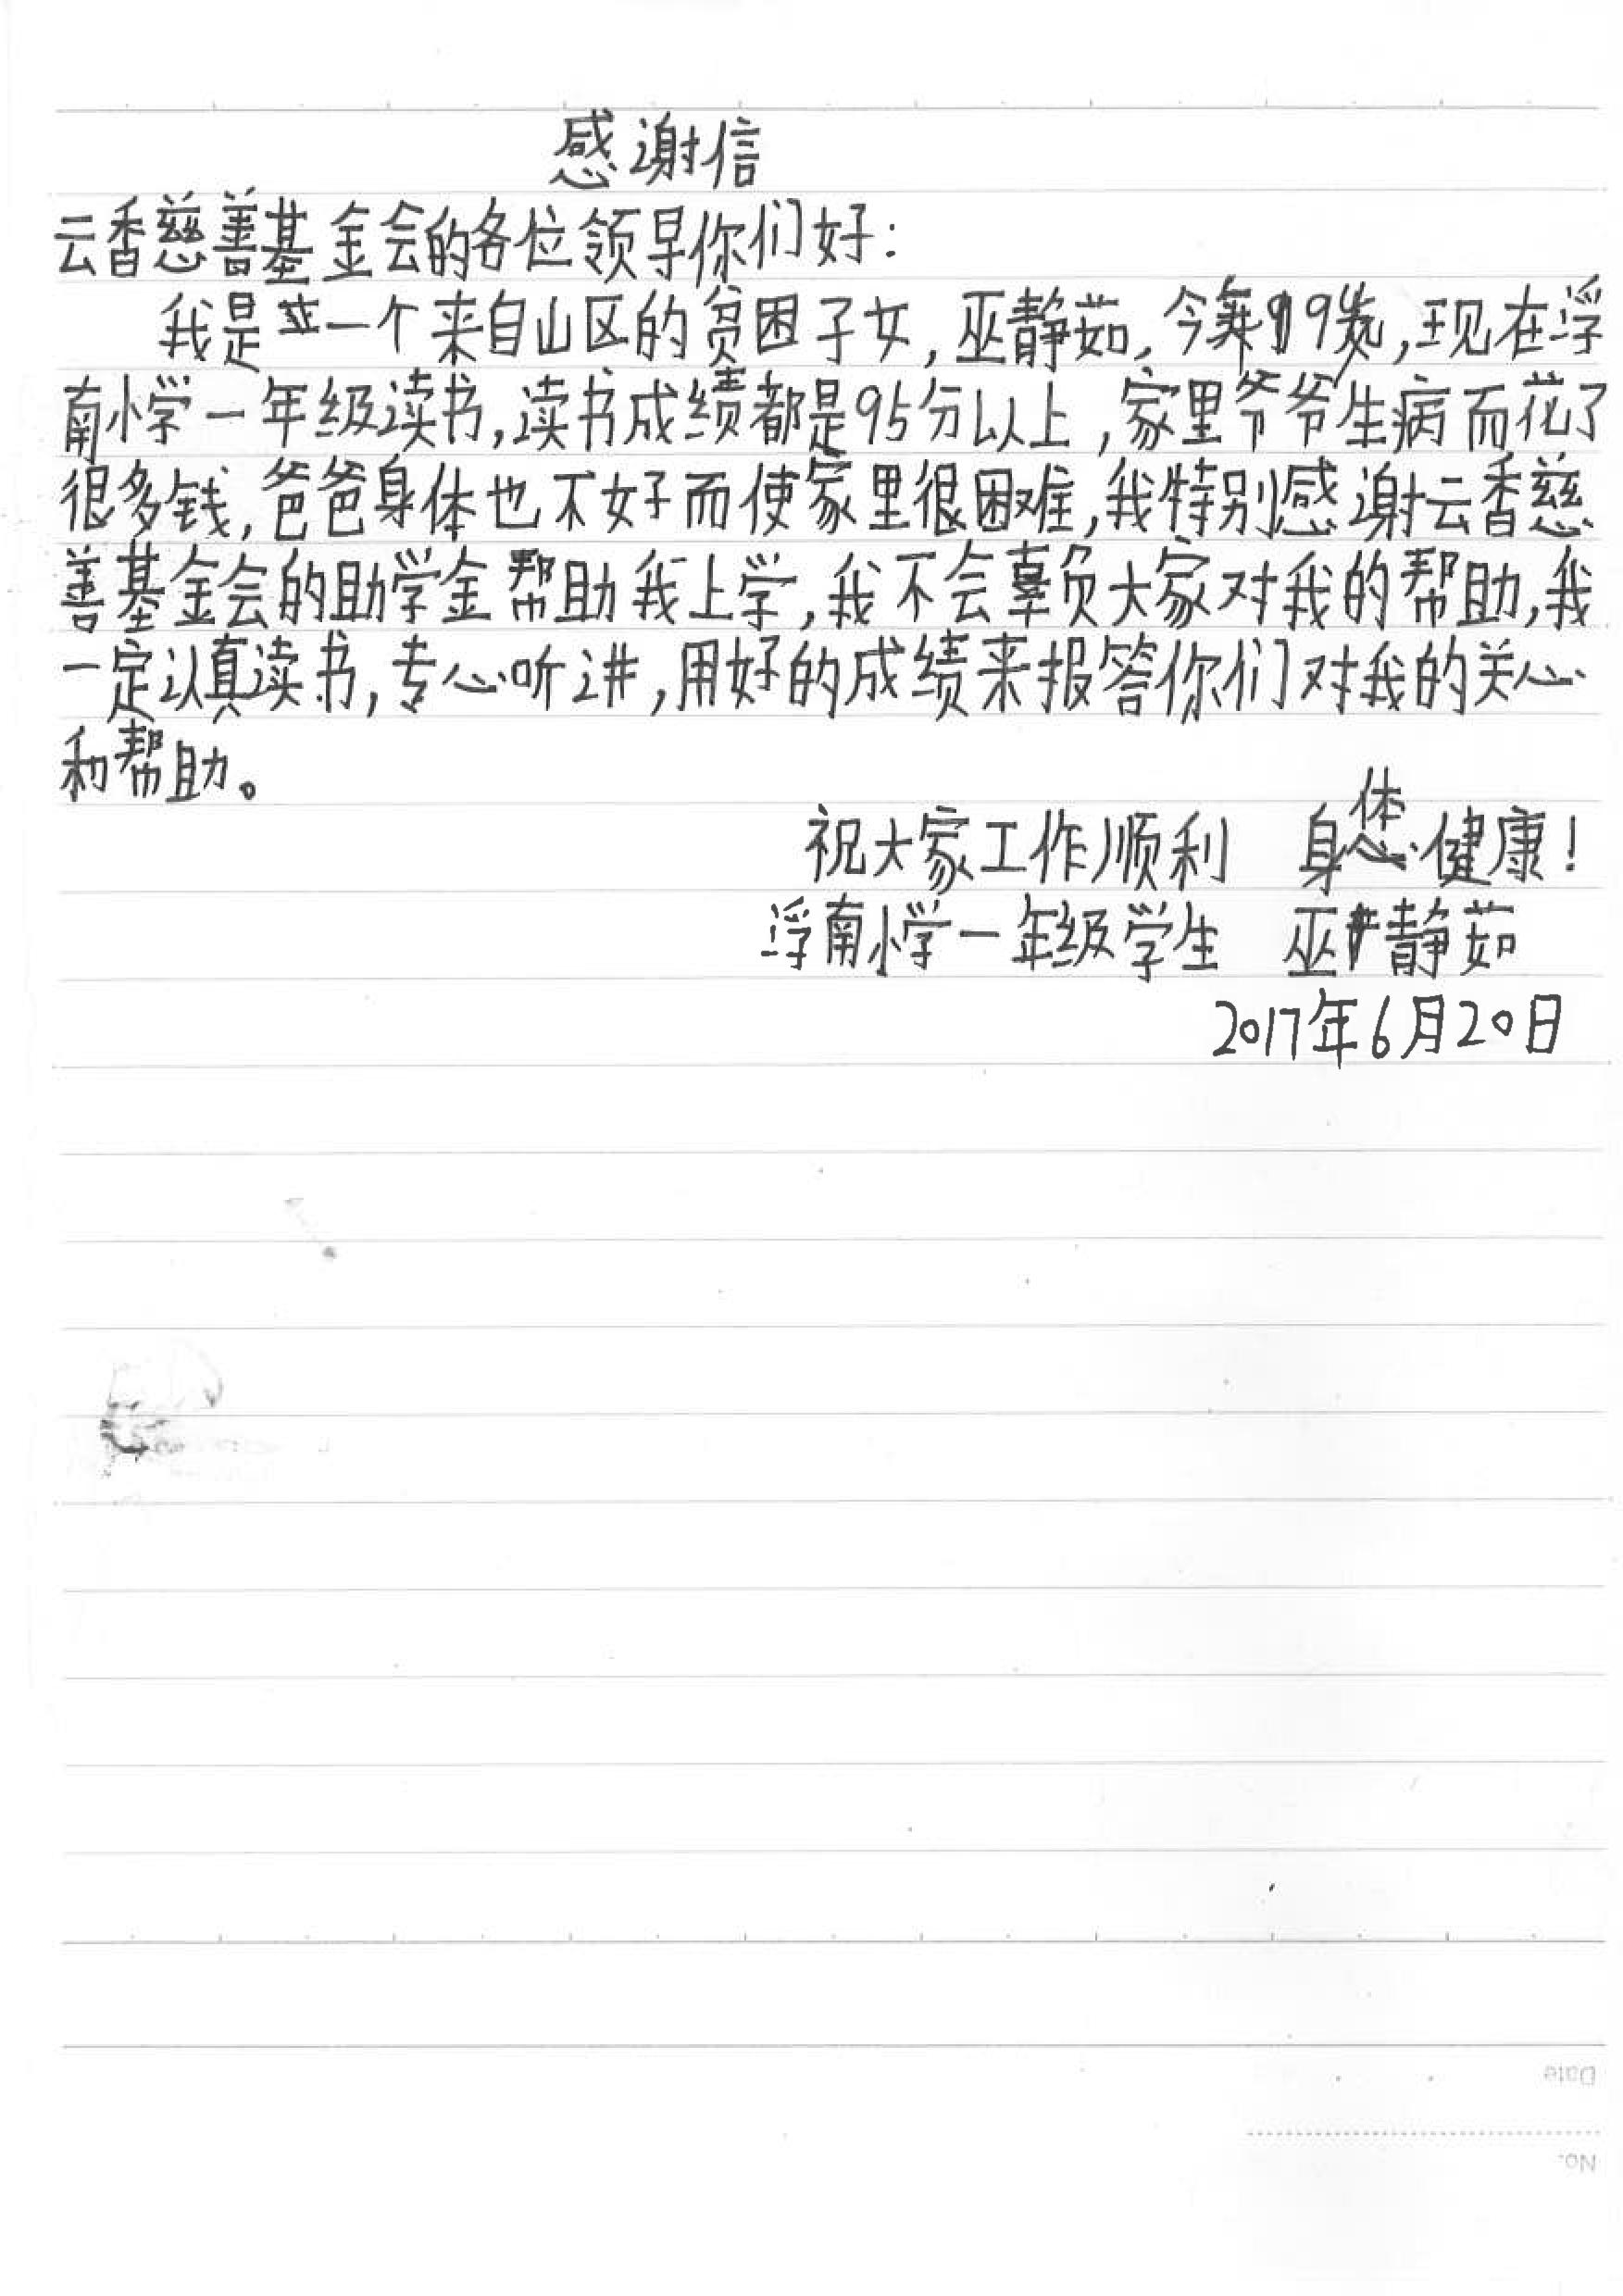 感谢信
云香慈善基金会的各位领早你们好：
我是一个来自山区的贫困子女，巫静茹，今年9岁，现在浮
南小学一年级读书，读书成绩都是95分以上，家里爷爷生病而花了
很多钱，爸爸身体也不好而使家里很困难，我特别感谢云香慈
善基金会的助学金帮助我上学，我不会辜负大家对我的帮助，我
一定认真读书，专心听讲，用好的成绩来报答你们对我的关心
和帮助。
祝大家工作顺利 身体健康！
浮南小学一年级学生 巫静茹
2017年6月20日
Date
No.